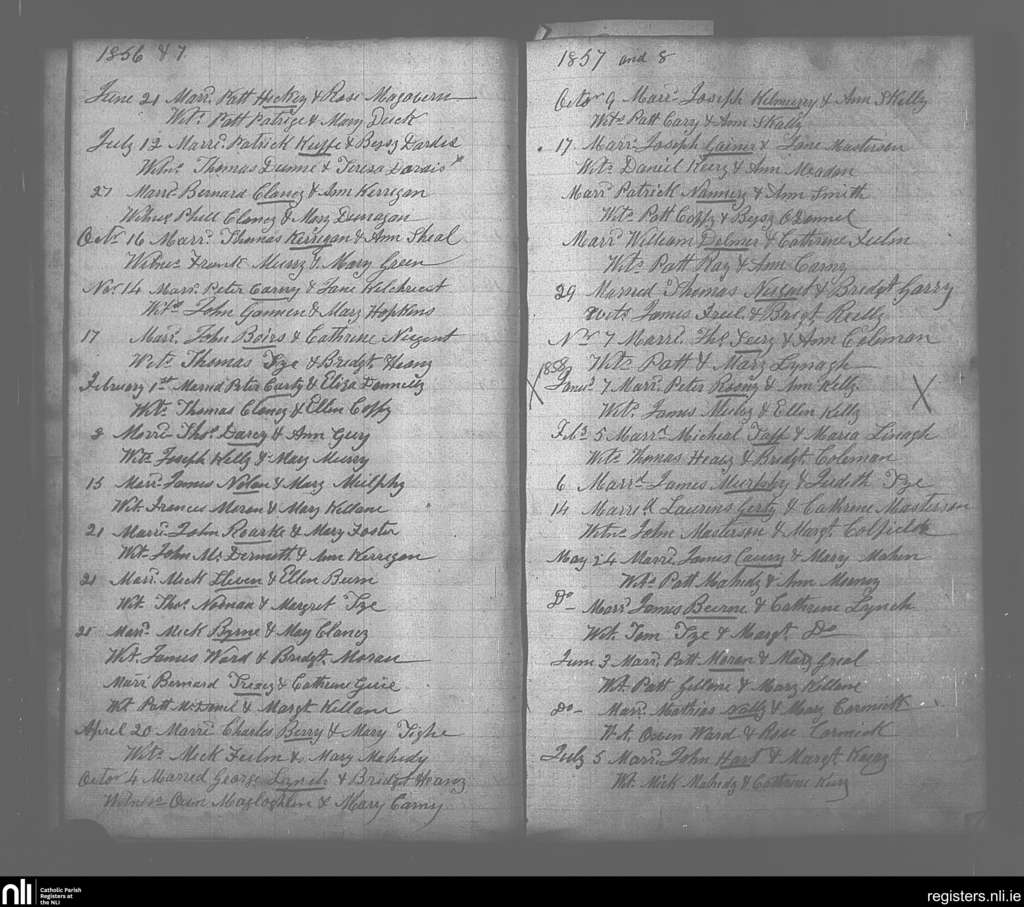 1856 & 7.
June 21 Marr. Patt Hickey & Rose Magovern
Wits. Patt Patrige & Mary Duck
July 13 Marr. Patrick Keeffe & Bessy Dardis
Witns. Thomas Dunne & Teresa Dardis
27 Marr. Bernard Clancy & Ann Kerrigan
Witness Phill Clancy & Mary Dunagan
Octr 16 Marr. Thomas Kerrigan & Ann Sheal
Witness Frank Murry & Mary Green
Nov. 14 Marr. Peter Carny & Jane Kelchriest
Wits. John & Mary Hopkins
17 Marr. John Boirs & Cathrine Nugent
Wits. Thomas Tye & Bridgt Heavy
February 1st Marred Peter Carty & Eliza
Wits. Thomas Clancy & Ellen Coffy
8 Marr. Thos. Darcy & Ann Guy
Wits. Joseph Kelly & Mary Murry
15 Marr. James Nolan & Mary Mulphy
Wit. Francis Moran & Mary Killane
21 Marr. John Roarke & Mary Foster
Wit. John Mc.Dermott & Ann Kerrigan
21 Marr. Mick Sliven & Ellen Burn
Wit. Thos. & Margret Tye
25 Marr. Mick Byrne & May Clancy
Wit. James Ward & Bridgt. Moran
Marr. Bernard & Cathrine
Wit. Patt McDaniel & Margt Killane
April 20 Marr. Charles Berry & Mary Tighe
Wits. Mick & Mary Mahedy
Octor 4 Marred George Lynch & Bridgt Heavy
Witness Owen Magloghlin & Mary Carny
1857 and 8
Octor 9 Marr. Joseph Kilmurry & Ann Skelly
Wits Patt Cary & Ann Skally
17. Marr. Joseph Gainer & Jane Masterson
Wits. Daniel & Ann Meadon
Marr. Patrick & Ann Smith
Wits. Patt Coffy & Bessy O Donnel
Marr. William Delmer & Cathrine
Wits. Patt Ray & Ann Carny
29 Married Thomas Nugent & Bridgt Garry
Wits. James & Bridgt Reilly
Nr 7 Marr. Thos. & Ann Coleman
Wits. Patt & Mary Lynagh
1858
X Janry. 7 Marr. Peter Roony & Ann Kelly X
Wits. James & Ellen Kelly
Feb. 5 Marrd Micheal Taff & Maria Linagh
Wits. Thomas Heavy & Bridgt. Coleman
6 Marrd. James Murphy & Judith Tye
14 Married Laurins Gerty & Cathrine Masterson
Witns. John Masterson & Margt.
May 24 Marr. James & Mary Mahin
Wits. Patt Mahedy & Ann
Do Marr. James Beirne & Cathrine Lynch
Wit. Tom Tye & Margt. Do
June 3 Marr. Patt Moran & Mary Greal
Wit. Patt Gillane & Mary Killane
Do Marr. Mathias Nally & Mary Cormick
Wit. Owen Ward & Rose Cormick
July 5 Marr. John Hart & Margt
Wit. Mick Mahedy & Cathrine
nli Catholic Parish
Registers at
the NLI
registers.nli.ie